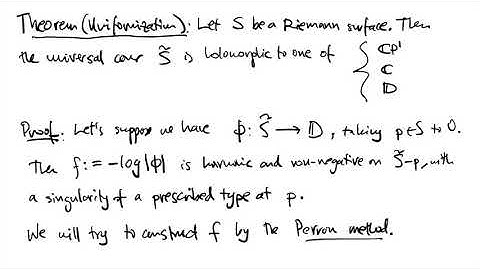 Theorem (Uniformization): Let S be a Riemann surface. Then
the universal cover S̃ is holomorphic to one of { CP¹
ℂ
𝔻
Proof: Let's suppose we have ϕ: S̃ → 𝔻, taking p∈S to 0.
Then f := -log|ϕ| is harmonic and non-negative on S̃-p, with
a singularity of a prescribed type at p.
We will try to construct f by the Perron method.